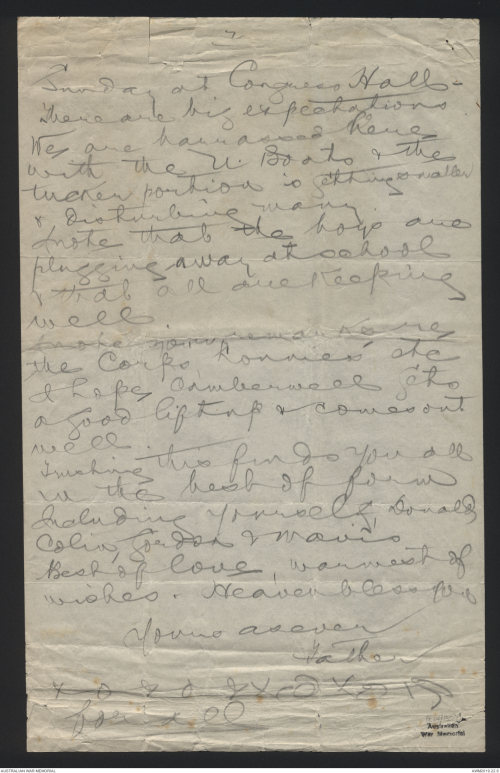 7
Sunday at Congress Hall -
There are big expectations
We are harrassed here
with the U. Boats & the
tucker portion is getting smaller
& disturbing many
I note that the boys are
plugging away at school
& that all are keeping
well.
I note your remarks re
the Corps, Bonnies etc
I hope Camberwell gets
a good lift up & comes out
well.
Trusting this finds you all
in the best of form
Including yourself, Donald,
Colin, Gordon & Mavis
Best of love, warmest of
wishes. Heaven bless you
Yours as ever
Father
Australian
War Memorial
AUSTRALIAN WAR MEMORIAL